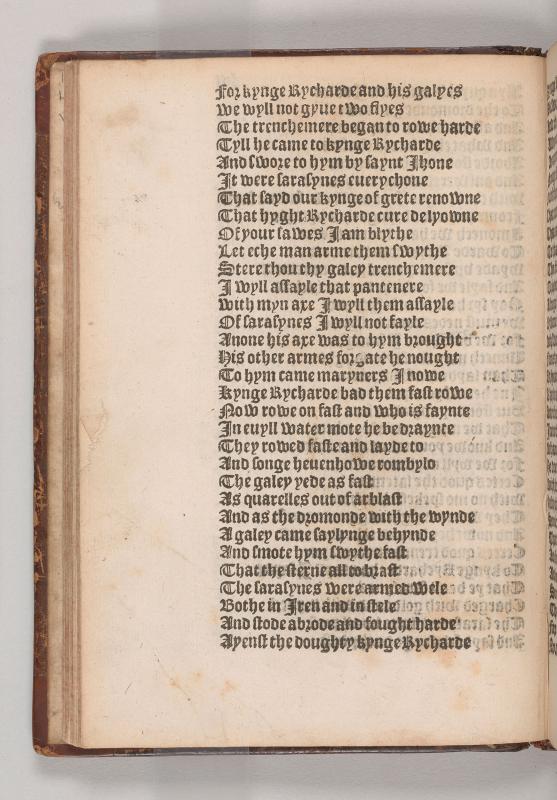 For kynge Rycharde and his galyes
We wyll not gyue two flyes
The trenchemere began to rowe harde
Tyll he came to kynge Rycharde
And swore to hym by saynt Jhone
It were sarasynes euerychone
That sayd our kynge of grete renowne
That hyght Rycharde cure delyowne
Of your sawes I am blythe
Let eche man arme them swythe
Stere thou thy galey trenchemere
I wyll assayle that pantenere
With myn axe I wyll them assayle
Of sarasynes I wyll not fayle
Anone his axe was to hym brought
His other armes forgate he nought
To hym came maryners I nowe
Kynge Rycharde bad them fast rowe
Now rowe on fast and who is faynte
In euyll water mote he be draynte
They rowed faste and layde to
And songe heuenhowe rombylo
The galey yede as fast
As quarelles out of arblast
And as the dromonde with the wynde
A galey came saylynge behynde
And smote hym swythe fast
That the sterne all to brast
The sarasynes were armed wele
Bothe in Iren and in stele
And stode abrode and fought harde
Ayenst the doughty kynge Rycharde